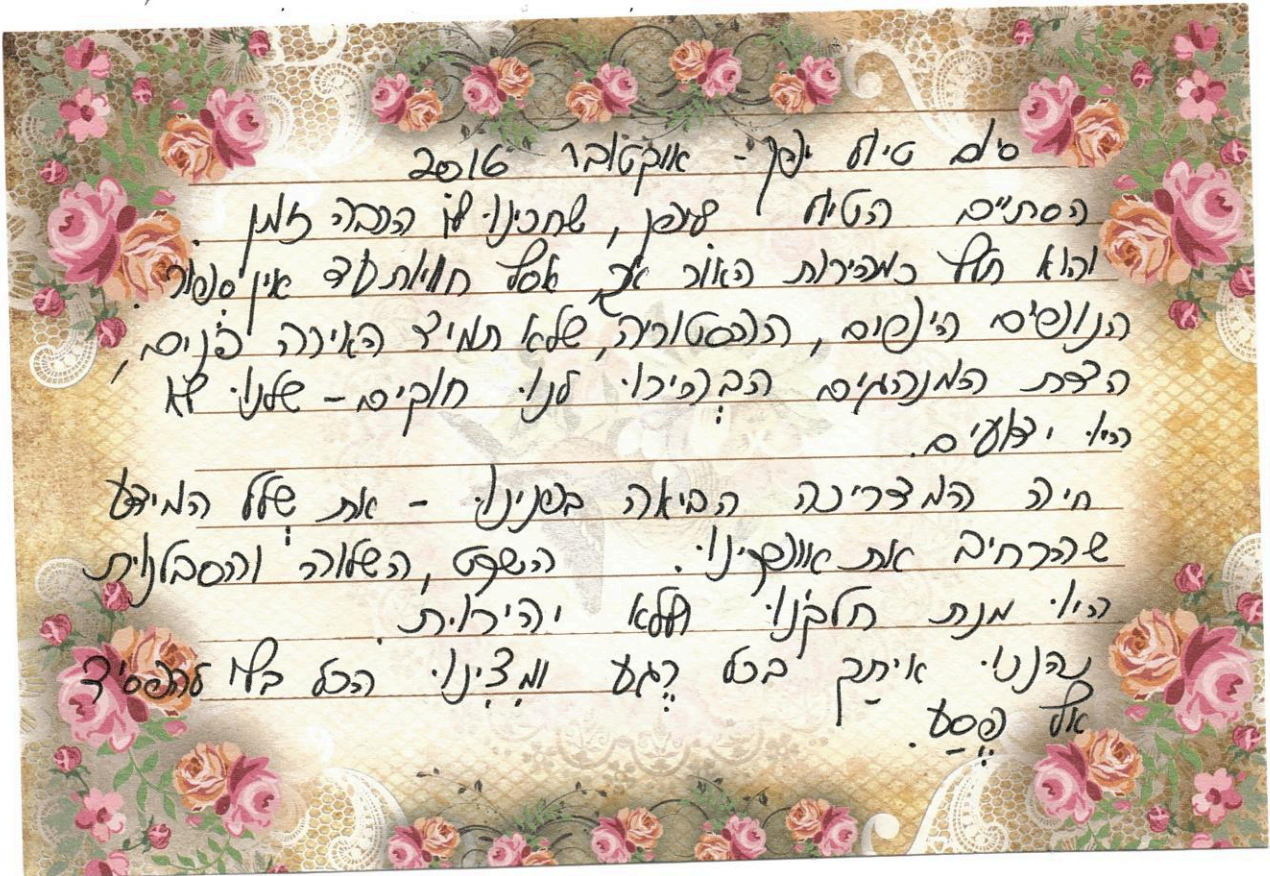 סיום טיול יפן - אוקטובר 2016
הסתיים הטיול ליפן, שחכינו לו הרבה זמן.
והוא חלף כמהירות האור אך אסף חוויות עד אין סְפור.
הנופים היפים, ההסטוריה, שלא תמיד האירה פנים,
הדת המנהגים הבְהירו לנו חוקים - שלנו לא
היו ידועים.
חיה המדריכה הביאה בפנינו - את שְלל המידע
שהרחיב את אופקינו. השקט, השלווה והסבלנות
היו מנת חלקנו וללא יהירות.
נהננו איתַך בכל רֶגע ומִצִינו הכל בלי להפסיד
אף פֶסַע.